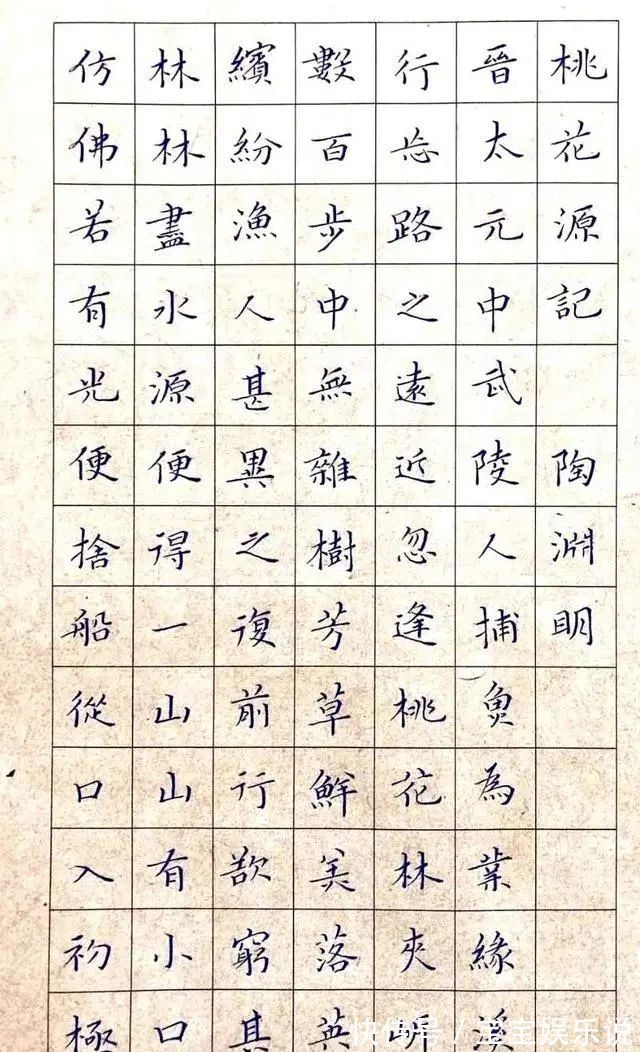 桃花源記 陶淵明
晉太元中武陵人捕魚為業緣溪
行忘路之遠近忽逢桃花林夾岸
數百步中無雜樹芳草鮮美落英
繽紛漁人甚異之復前行欲窮其
林林盡水源便得一山山有小口
仿佛若有光便捨船從口入初極
快传号／宝宝娱乐说